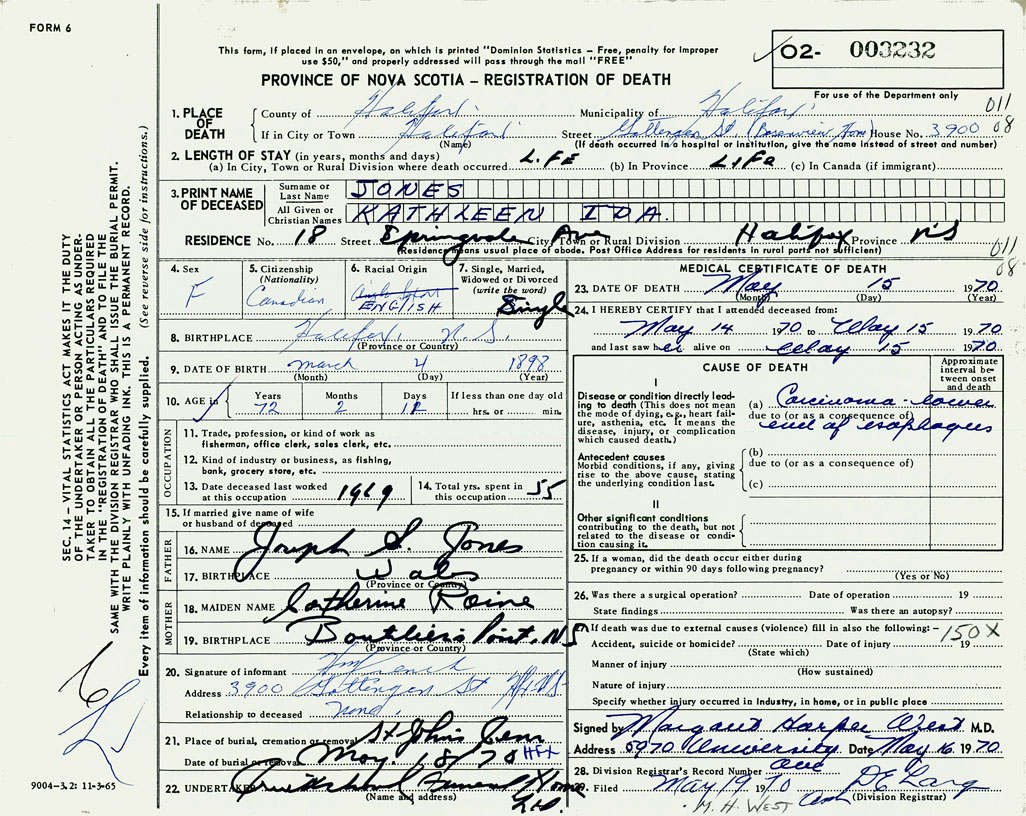 FORM 6
This form, if placed in an envelope, on which is printed "Dominion Statistics – Free, penalty for improper
use $50," and properly addressed will pass through the mail "FREE"
O2- 003232
For use of the Department only
PROVINCE OF NOVA SCOTIA – REGISTRATION OF DEATH
011
08
1. PLACE OF DEATH
County of Halifax Municipality of Halifax
If in City or Town Halifax Street Gottengen St. House No. 3900
(Name) (If death occurred in a hospital or institution, give the name instead of street and number)
2. LENGTH OF STAY (in years, months and days)
(a) In City, Town or Rural Division where death occurred LIFE (b) In Province LIFE (c) In Canada (if immigrant)
3. PRINT NAME OF DECEASED
Surname or Last Name JONES
All Given or Christian Names KATHLEEN IDA
RESIDENCE No. 18 Street Springvale Ave City, Town or Rural Division Halifax Province NS
(Residence means usual place of abode. Post Office Address for residents in rural parts not sufficient)
011
08
4. Sex F
5. Citizenship (Nationality) Canadian
6. Racial Origin ENGLISH
7. Single, Married, Widowed or Divorced (write the word) Single
8. BIRTHPLACE Halifax, N.S.
(Province or Country)
9. DATE OF BIRTH March 4 1898
(Month) (Day) (Year)
10. AGE in Years 72 Months 2 Days 12 If less than one day old hrs. or min.
OCCUPATION
11. Trade, profession, or kind of work as
fisherman, office clerk, sales clerk, etc.
12. Kind of industry or business, as fishing,
bank, grocery store, etc.
13. Date deceased last worked at this occupation 1969
14. Total yrs. spent in this occupation 55
15. If married give name of wife
or husband of deceased
FATHER
16. NAME Joseph S. Jones
17. BIRTHPLACE Wales
(Province or Country)
MOTHER
18. MAIDEN NAME Catherine
19. BIRTHPLACE Boutliers Point, NS
(Province or Country)
20. Signature of informant
Address 3900 Gottengen St Hfx NS
Relationship to deceased
21. Place of burial, cremation or removal St Johns Cem
Date of burial or removal May 18/70 HFX
22. UNDERTAKER Cruikshank Funeral Home
(Name and address) Ltd.
MEDICAL CERTIFICATE OF DEATH
23. DATE OF DEATH May 15 1970
(Month) (Day) (Year)
24. I HEREBY CERTIFY that I attended deceased from:
May 14 1970 to May 15 1970
and last saw her alive on May 15 1970
CAUSE OF DEATH
Approximate interval between onset and death
I
Disease or condition directly leading
to death (This does not mean
the mode of dying, e.g., heart failure,
asthenia, etc. It means the
disease, injury, or complication
which caused death.)
(a) Carcinoma - lower
due to (or as a consequence of)
end of esophagus
Antecedent causes
Morbid conditions, if any, giving
rise to the above cause, stating
the underlying condition last.
(b)
due to (or as a consequence of)
(c)
II
Other significant conditions
contributing to the death, but not
related to the disease or condition
causing it.
25. If a woman, did the death occur either during
pregnancy or within 90 days following pregnancy?
(Yes or No)
26. Was there a surgical operation? Date of operation 19
State findings Was there an autopsy?
If death was due to external causes (violence) fill in also the following:–
150X
Accident, suicide or homicide? Date of injury 19
(State which)
Manner of injury
(How sustained)
Nature of injury
Specify whether injury occurred in Industry, in home, or in public place
Signed by Margaret Harper West M.D.
Address 5970 University Ave Date May 16 1970
28. Division Registrar's Record Number
29. Filed May 19 1970
(Division Registrar)
M. H. WEST
SEC. 14 – VITAL STATISTICS ACT MAKES IT THE DUTY
OF THE UNDERTAKER OR PERSON ACTING AS UNDER-
TAKER TO OBTAIN ALL THE PARTICULARS REQUIRED
IN THE "REGISTRATION OF DEATH" AND TO FILE THE
SAME WITH THE DIVISION REGISTRAR WHO SHALL ISSUE THE BURIAL PERMIT.
WRITE PLAINLY WITH UNFADING INK. THIS IS A PERMANENT RECORD.
Every item of information should be carefully supplied. (See reverse side for instructions.)
9004-3.2: 11-3-65